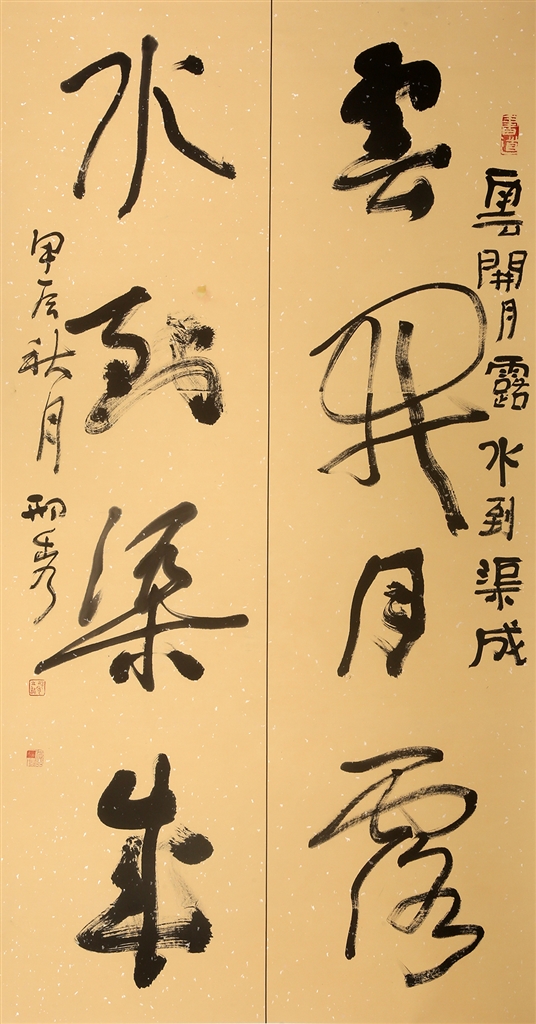 雲開月露 水到渠成
雲開月露
水到渠成
甲辰秋月 邢